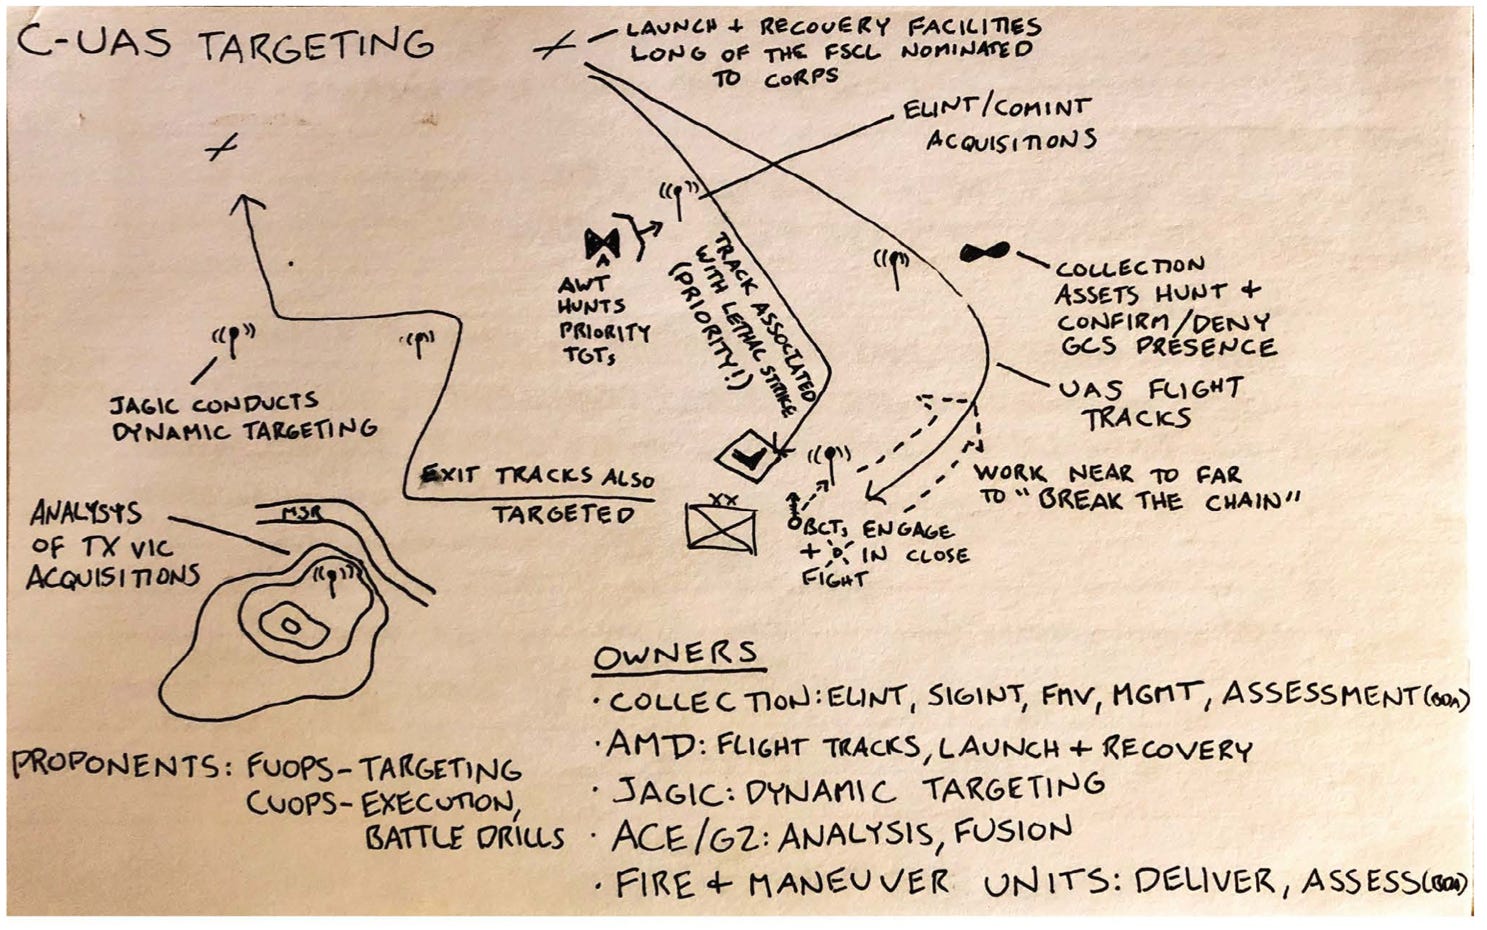 C-UAS TARGETING
LAUNCH + RECOVERY FACILITIES
LONG OF THE FSCL NOMINATED
TO CORPS
ELINT/COMINT
ACQUISITIONS
TRACK ASSOCIATED
WITH LETHAL STRIKE
(PRIORITY!)
AWT
HUNTS
PRIORITY
TGTs
COLLECTION
ASSETS HUNT +
CONFIRM/DENY
GCS PRESENCE
UAS FLIGHT
TRACKS
JAGIC CONDUCTS
DYNAMIC TARGETING
EXIT TRACKS ALSO
TARGETED
WORK NEAR TO FAR
TO "BREAK THE CHAIN"
XX
BCTs ENGAGE
+ IN CLOSE
FIGHT
MSR
ANALYSYS
OF TX VIC
ACQUISITIONS
PROPONENTS: FUOPS-TARGETING
CUOPS-EXECUTION,
BATTLE DRILLS
OWNERS
· COLLECTION: ELINT, SIGINT, FMV, MGMT, ASSESSMENT (BDA)
· AMD: FLIGHT TRACKS, LAUNCH + RECOVERY
· JAGIC: DYNAMIC TARGETING
· ACE/G2: ANALYSIS, FUSION
· FIRE + MANEUVER UNITS: DELIVER, ASSESS (BDA)